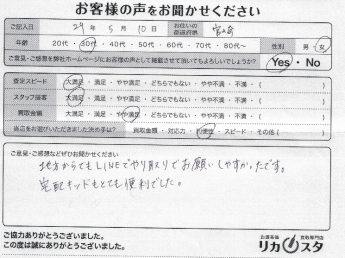 お客様の声をお聞かせください
ご記入日 29年 5月 10日 お住いの都道府県
年齢 20代・30代・40代・50代・60代・70代・80代〜 性別 男・女
ご意見・ご感想を弊社ホームページにお客様の声として掲載させて頂いてもよろしいでしょうか? Yes・No
査定スピード 大満足・満足・やや満足・どちらでもない・やや不満・不満・( )
スタッフ接客 大満足・満足・やや満足・どちらでもない・やや不満・不満・( )
買取金額 大満足・満足・やや満足・どちらでもない・やや不満・不満・( )
当店をお選びいただきました決め手は? 買取金額・対応力・利便性・スピード・その他( )
ご意見・ご感想などぜひお聞かせください
地方からでもLINEでやり取りでお願いしやすかったです。
宅配キッドもとても便利でした。
ご協力ありがとうございました。
この度は誠にありがとうございました。
お酒高価 買取専門店
リカスタ